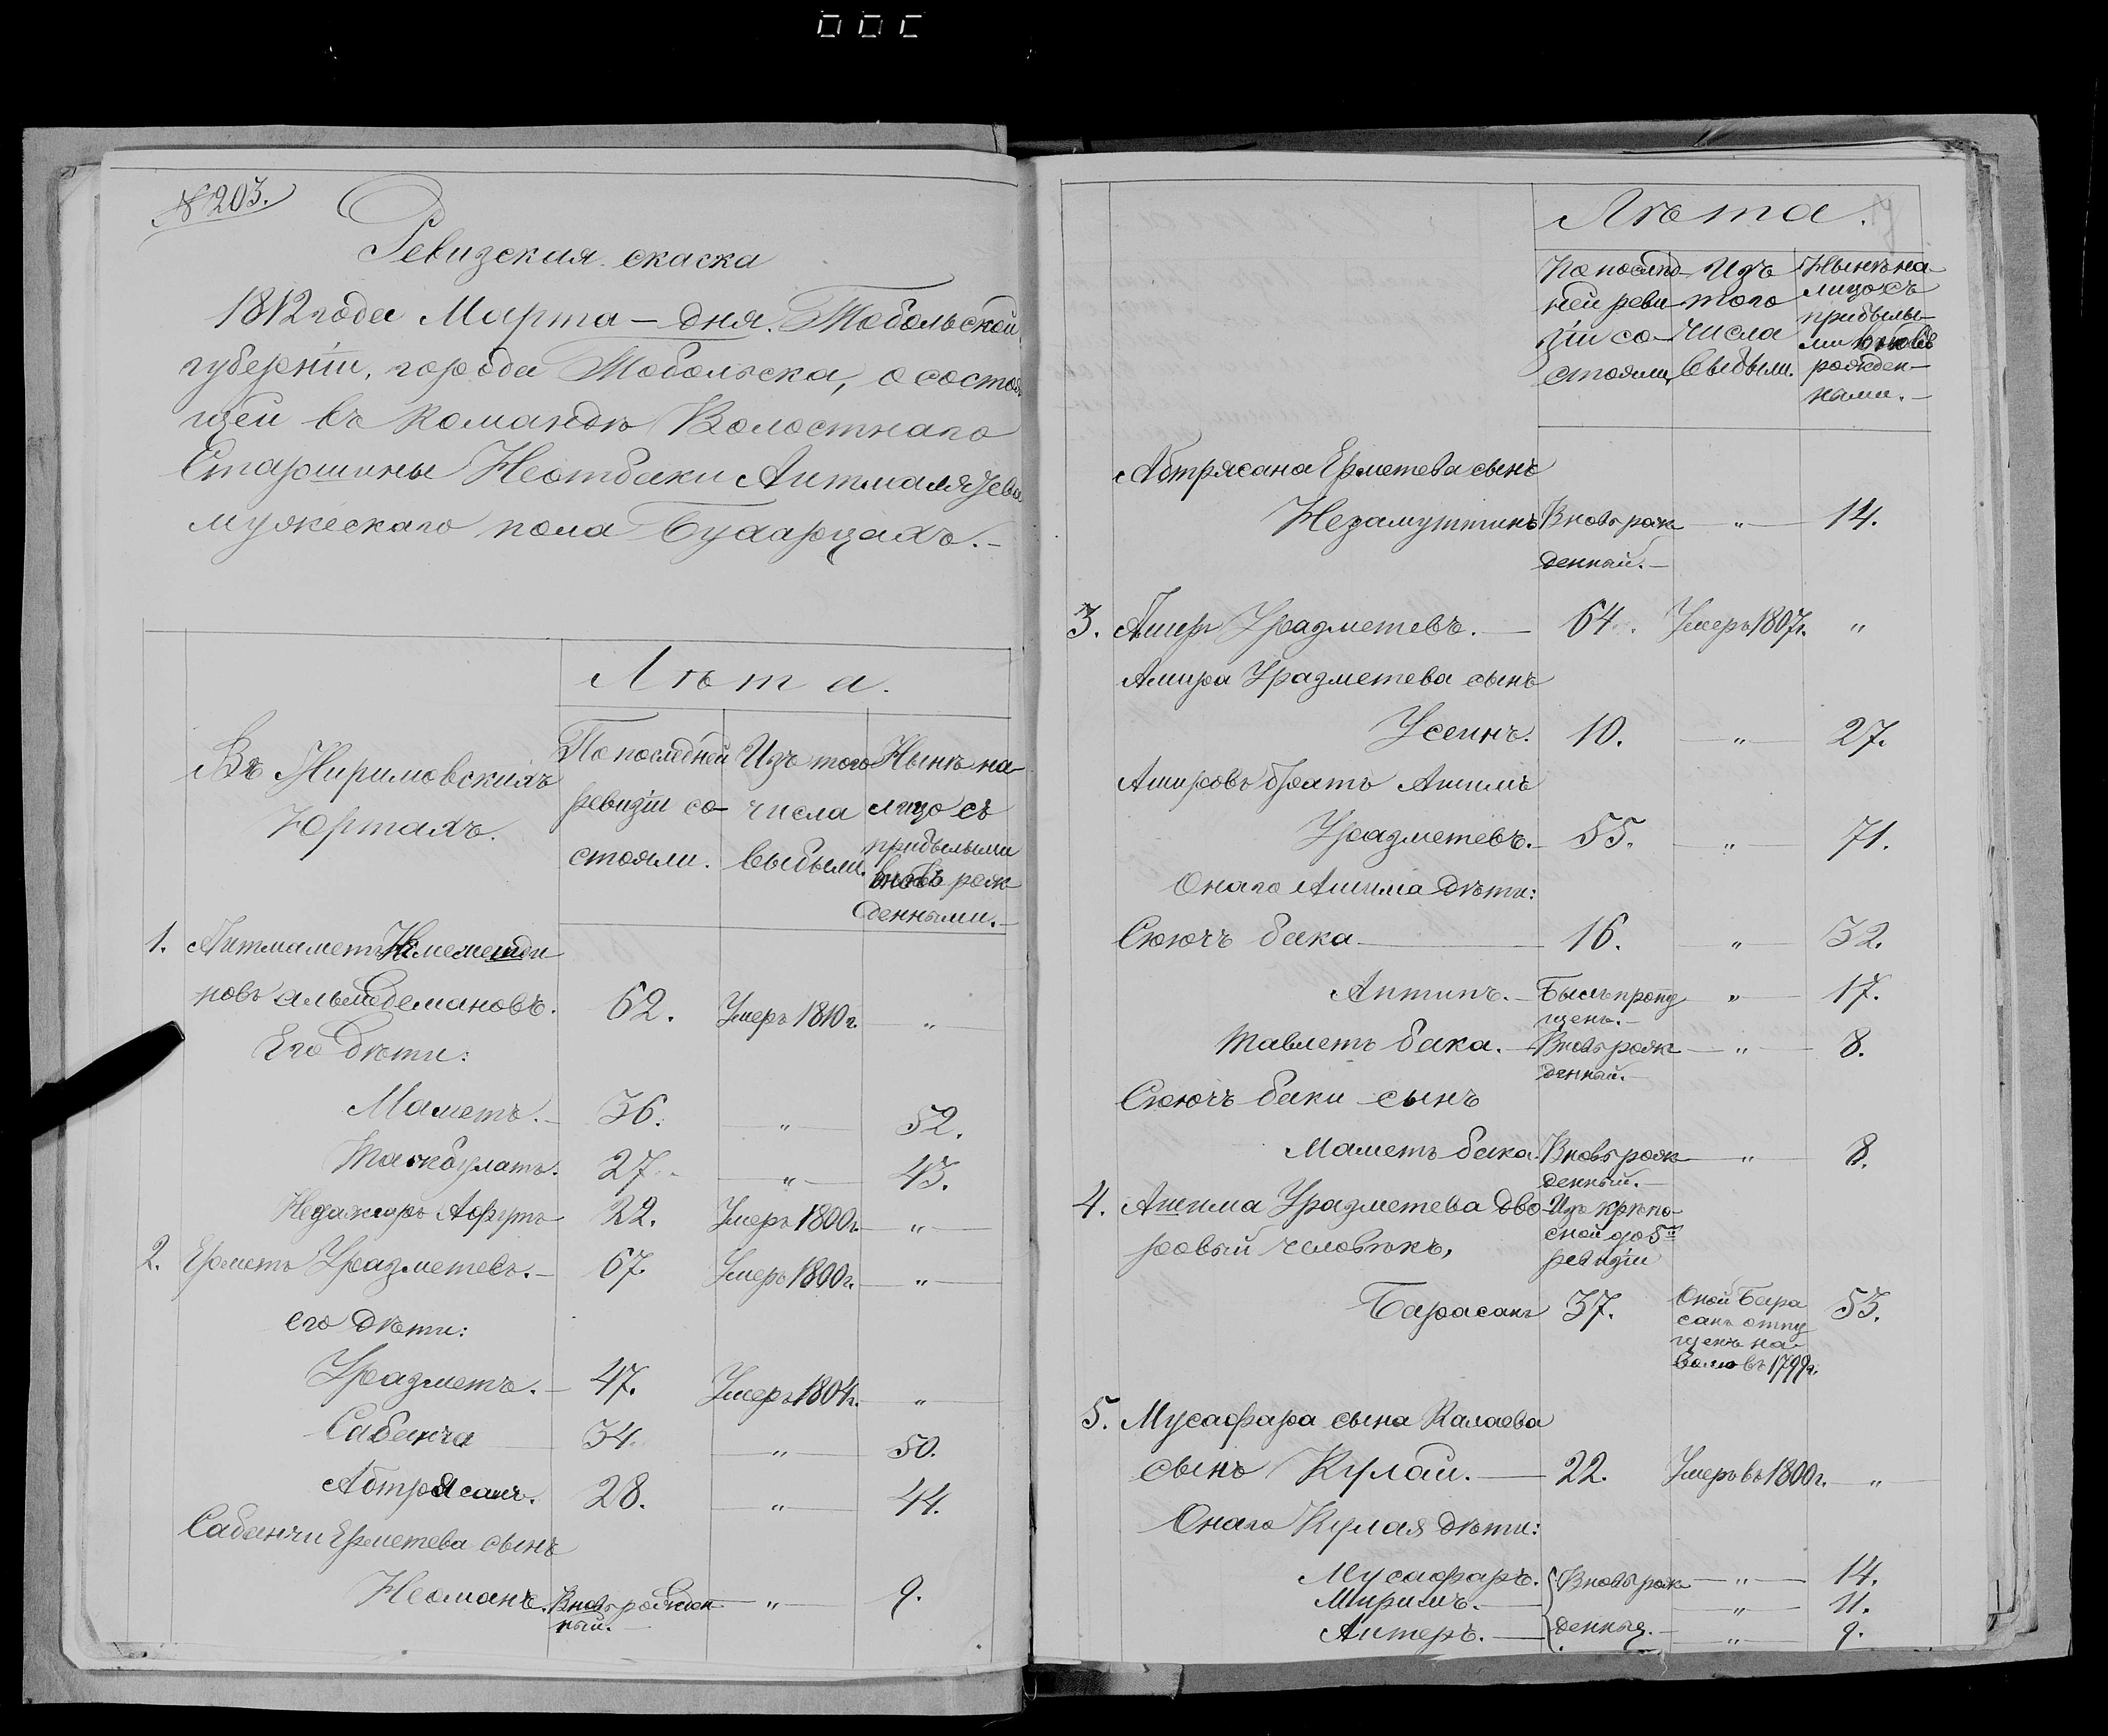 № 203.
Ревизская скаска
1812 года Марта — дня. Тобольской
губернiи, города Тобольска, о состоя
щей въ командѣ Волостнаго
Старшины Неотбаки Аитмамязева
мужескаго пола Бухарцахъ. —
Лѣта.
Въ Юртахъ.
По последней ревизiи со- стояли.
Изъ того числа выбыли.
Нынѣ на- лицо съ прибылыми вновь рож денными. —
1. Аитмаметъ
новъ 62. Умеръ 1810 г. "
Его дѣти:
Маметъ. — 36. " 52.
Ташбулатъ. 27. " 43.
22. Умеръ 1800 г. "
2. Ерметъ Уразметевъ. — 67. Умеръ 1800 г. "
его дѣти:
Уразметъ. — 47. Умеръ 1804 г. "
Сабанча 34. " 50.
Абтрясанъ. 28. " 44.
Сабанчи Ерметева сынъ
Неоманъ. Вновь рожден " 9.
ный. —
Лѣта.
По послѣд- ней реви зiи со- стояли,
Изъ того числа выбыли.
Нынѣ на- лицо съ прибылы- ми вновь рожден- ными. —
Абтрясана Ерметева сынъ
Незамуттинъ Вновь рож — " — 14.
денный. —
3. Амиръ Уразметевъ. — 64. Умеръ 1807 г. "
Амира Уразметева сынъ
Усеинъ. 10. — " — 27.
Амировъ братъ Ашимъ
Уразметевъ. — 55. — " — 71.
Онаго Ашима дѣти:
Сюючъ бака — 16. — " — 32.
Аптипъ. — Былъ пропу " 17.
щенъ. —
Мавлетъ бака. — Вновь рож — " — 8.
денный. —
Сюючъ баки сынъ
Маметъ бака. Вновь рож — " — 8.
денный. —
4. Ашима Уразметева дво- Изъ крѣпо-
ровый человѣкъ, сной до 5й
ревизiи
Барасанъ 37. Оной Бара 53.
санъ отпу
щенъ на
волю въ 1799 г.
5. Мусафара сына Калаева
сынъ Кулай. — 22. Умеръ въ 1800 г. — "
Онаго Кулая дѣти:
Мусафаръ. Вновь рож — " — 14.
Миримъ. — — " — 11.
Аитеръ. — денные. — — " — 9.